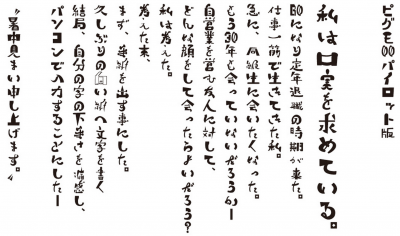 ピグモ00パイロット版
私は口実を求めている。
60になり定年退職の時期が来た。
仕事一筋で生きてきた私。
急に、同級生に会いたくなった。
もう30年も会っていないだろうかー
自営業を営む友人に対して、
どんな顔をして会ったらよいだろう?
私は考えた。
考えた末、
まず、葉書を出す事にした。
久しぶりの白い紙へ文字を書く
結局、自分の字の下手さを痛感し、
パソコンで入力することにしたー
〝暑中見まい申し上げます。〟